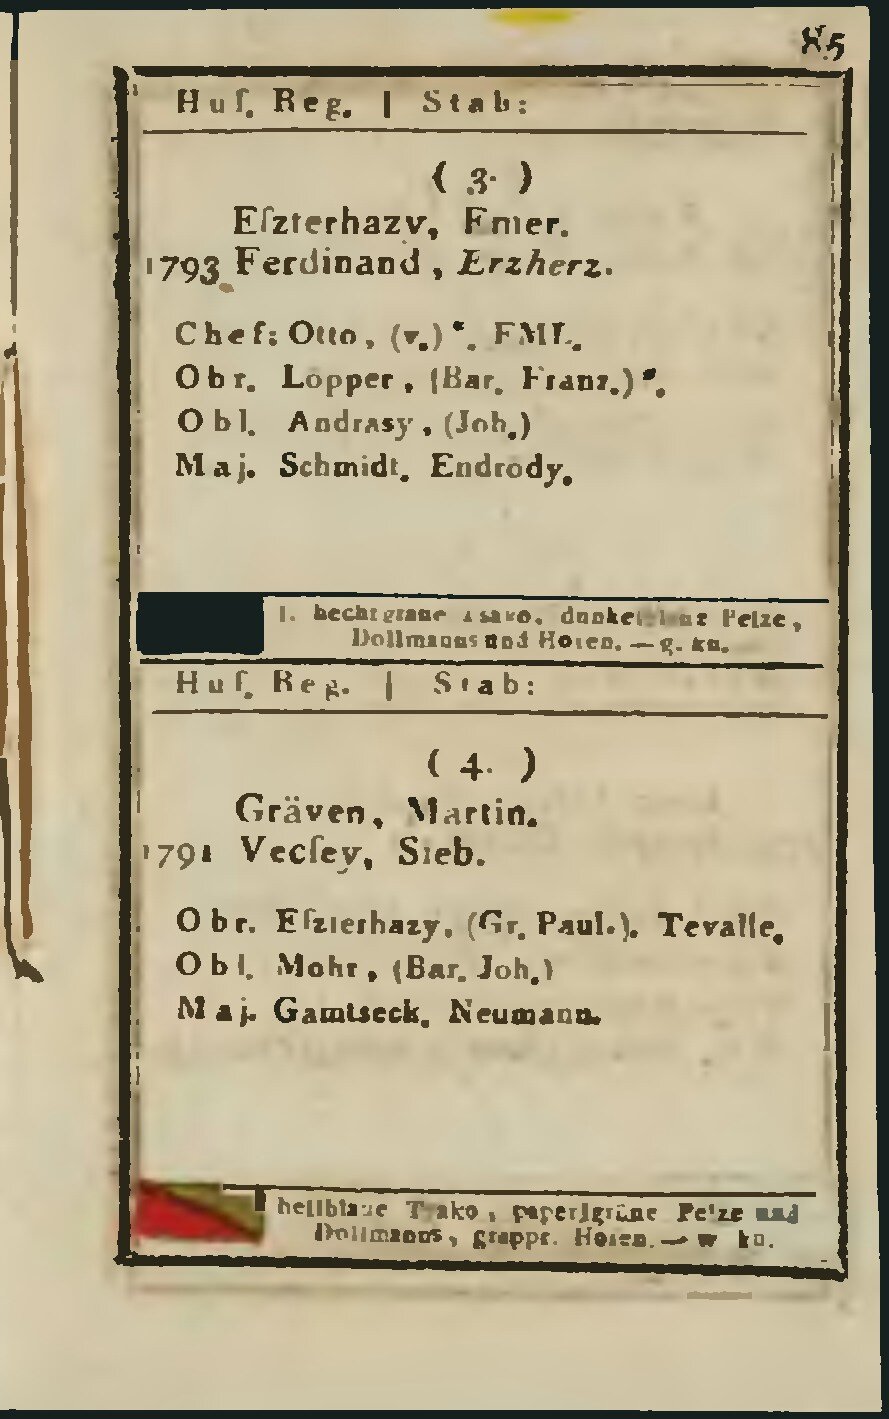 85
Huſ. Reg. | Stab:
( 3. )
Eſzterhazy, Emer.
1793 Ferdinand, Erzherz.
Chef: Otto, (v.) *. FML.
Obr. Lopper, (Bar. Franz.) *.
Obl. Andrasy, (Joh.)
Maj. Schmidt. Endrödy.
l. hechtgraue Tsako, Pelze,
Dollmanns und Hosen. — g. kn.
Huſ. Reg. | Stab:
( 4. )
Gräven, Martin.
1791 Vecſey, Sieb.
Obr. Eſzterhazy, (Gr. Paul.). Tevalle.
Obl. Mohr, (Bar. Joh.)
Maj. Gamtseck. Neumann.
hellblaue Tsako, paperlgrüne Pelze und
Dollmanns, grappr. Hosen. — w kn.